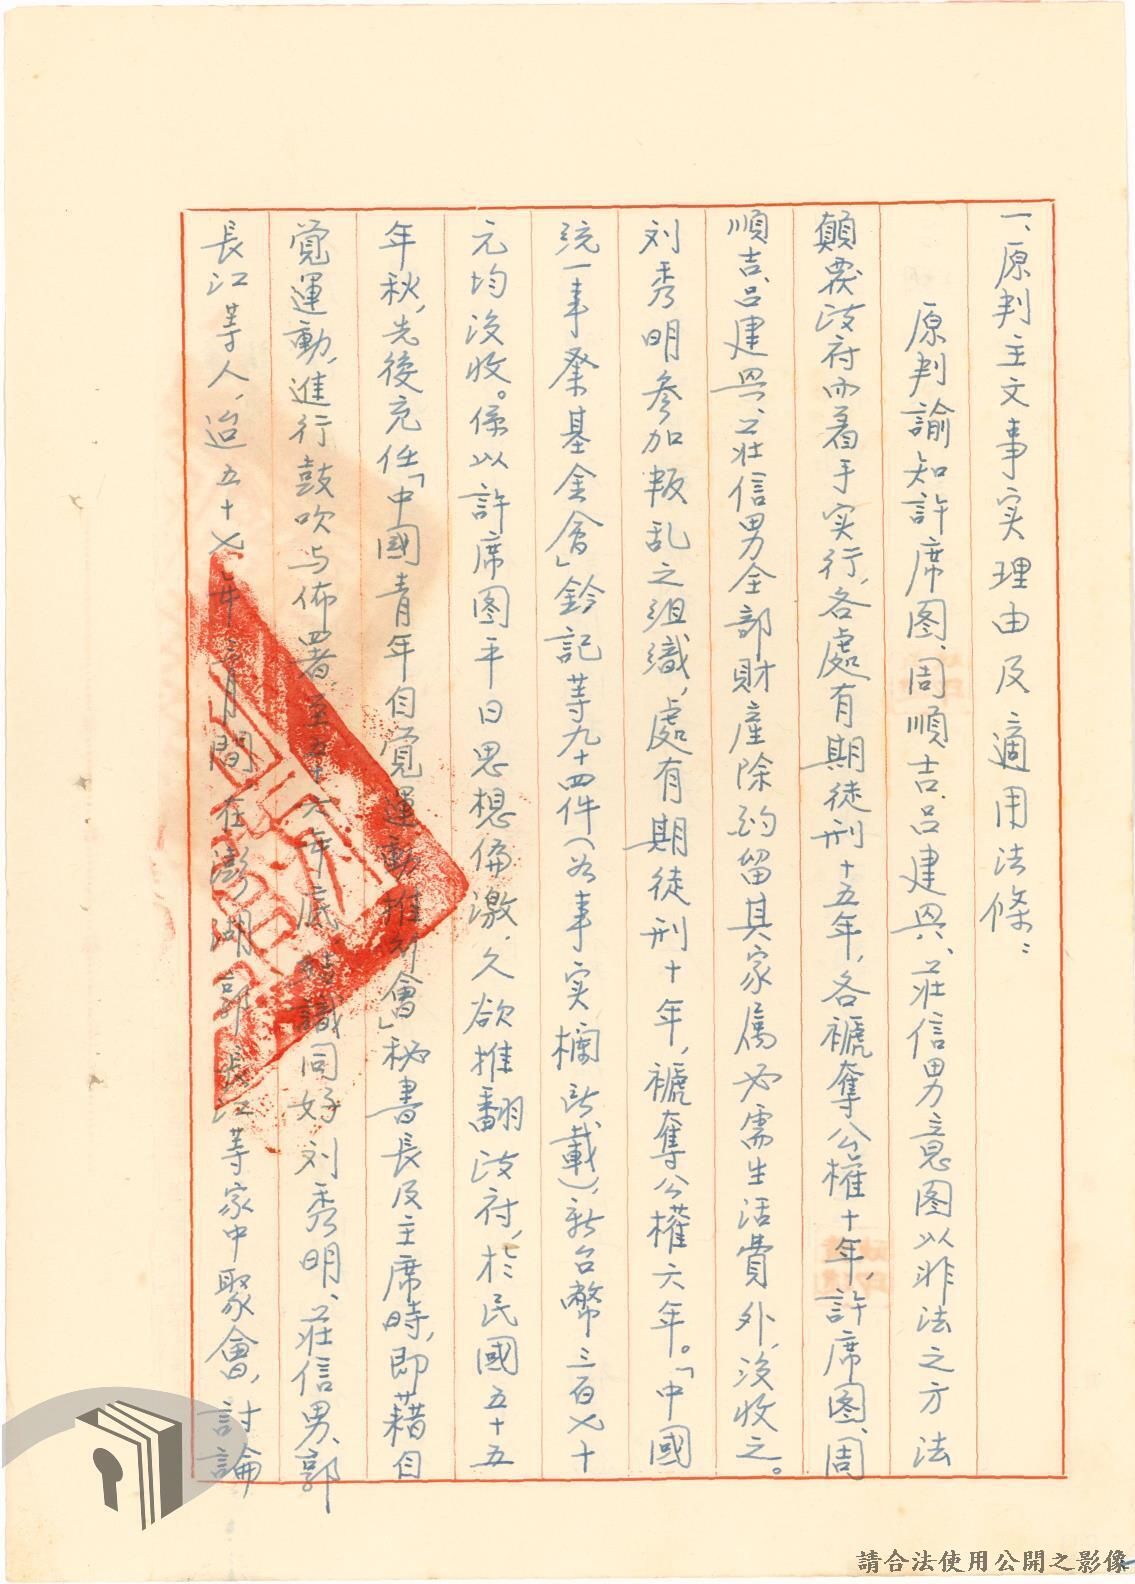 一、原判主文事实理由及適用法條：
原判諭知許席图、周順吉、吕建興、莊信男意图以非法之方法
顛覆政府而着手实行，各處有期徒刑十五年，各褫奪公權十年，許席图、周
順吉、吕建興、莊信男全部財産除酌留其家属必需生活費外，沒收之。
刘秀明参加叛乱之組織，處有期徒刑十年，褫奪公權六年。「中國
統一事業基金會」鈐記等九十四件（如事实欄所載），新台幣三百七十
元均沒收。係以許席图平日思想偏激，久欲推翻政府，於民國五十五
年秋，先後充任「中國青年自覚運動推行會」秘書長及主席時，即藉自
覚運動，進行鼓吹与佈署，至五十六年底，結識同好刘秀明、莊信男、郭
長江等人，迨五十七年三月間，在澎湖郭長江等家中聚會，討論
請合法使用公開之影像